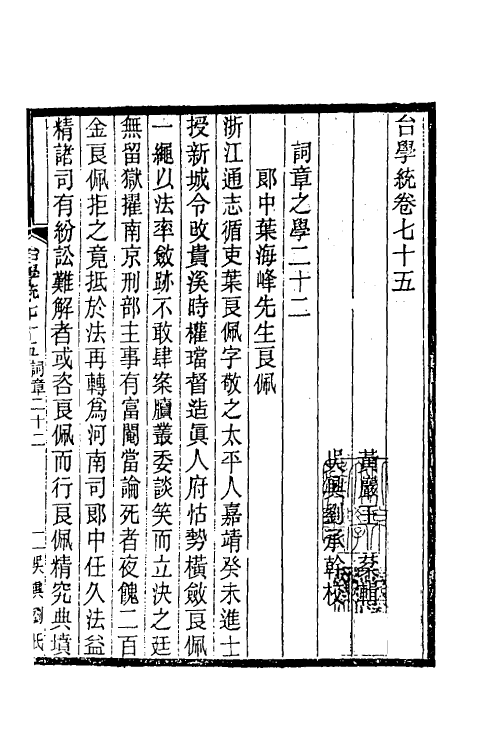 台學統卷七十五
黃巖王棻輯
吳興劉承幹校
詞章之學二十二
郞中葉海峰先生良佩
浙江通志循吏葉良佩字敬之太平人嘉靖癸未進士
授新城令改貴溪時權璫督造眞人府怙勢橫斂良佩
一繩以法率斂跡不敢肆案牘叢委談笑而立決之廷
無留獄擢南京刑部主事有富閹當論死者夜餽二百
金良佩拒之竟抵於法再轉爲河南司郞中任久法益
精諸司有紛訟難解者或咨良佩而行良佩精究典墳
台學統七十五詞章二十二
一吳興劉氏